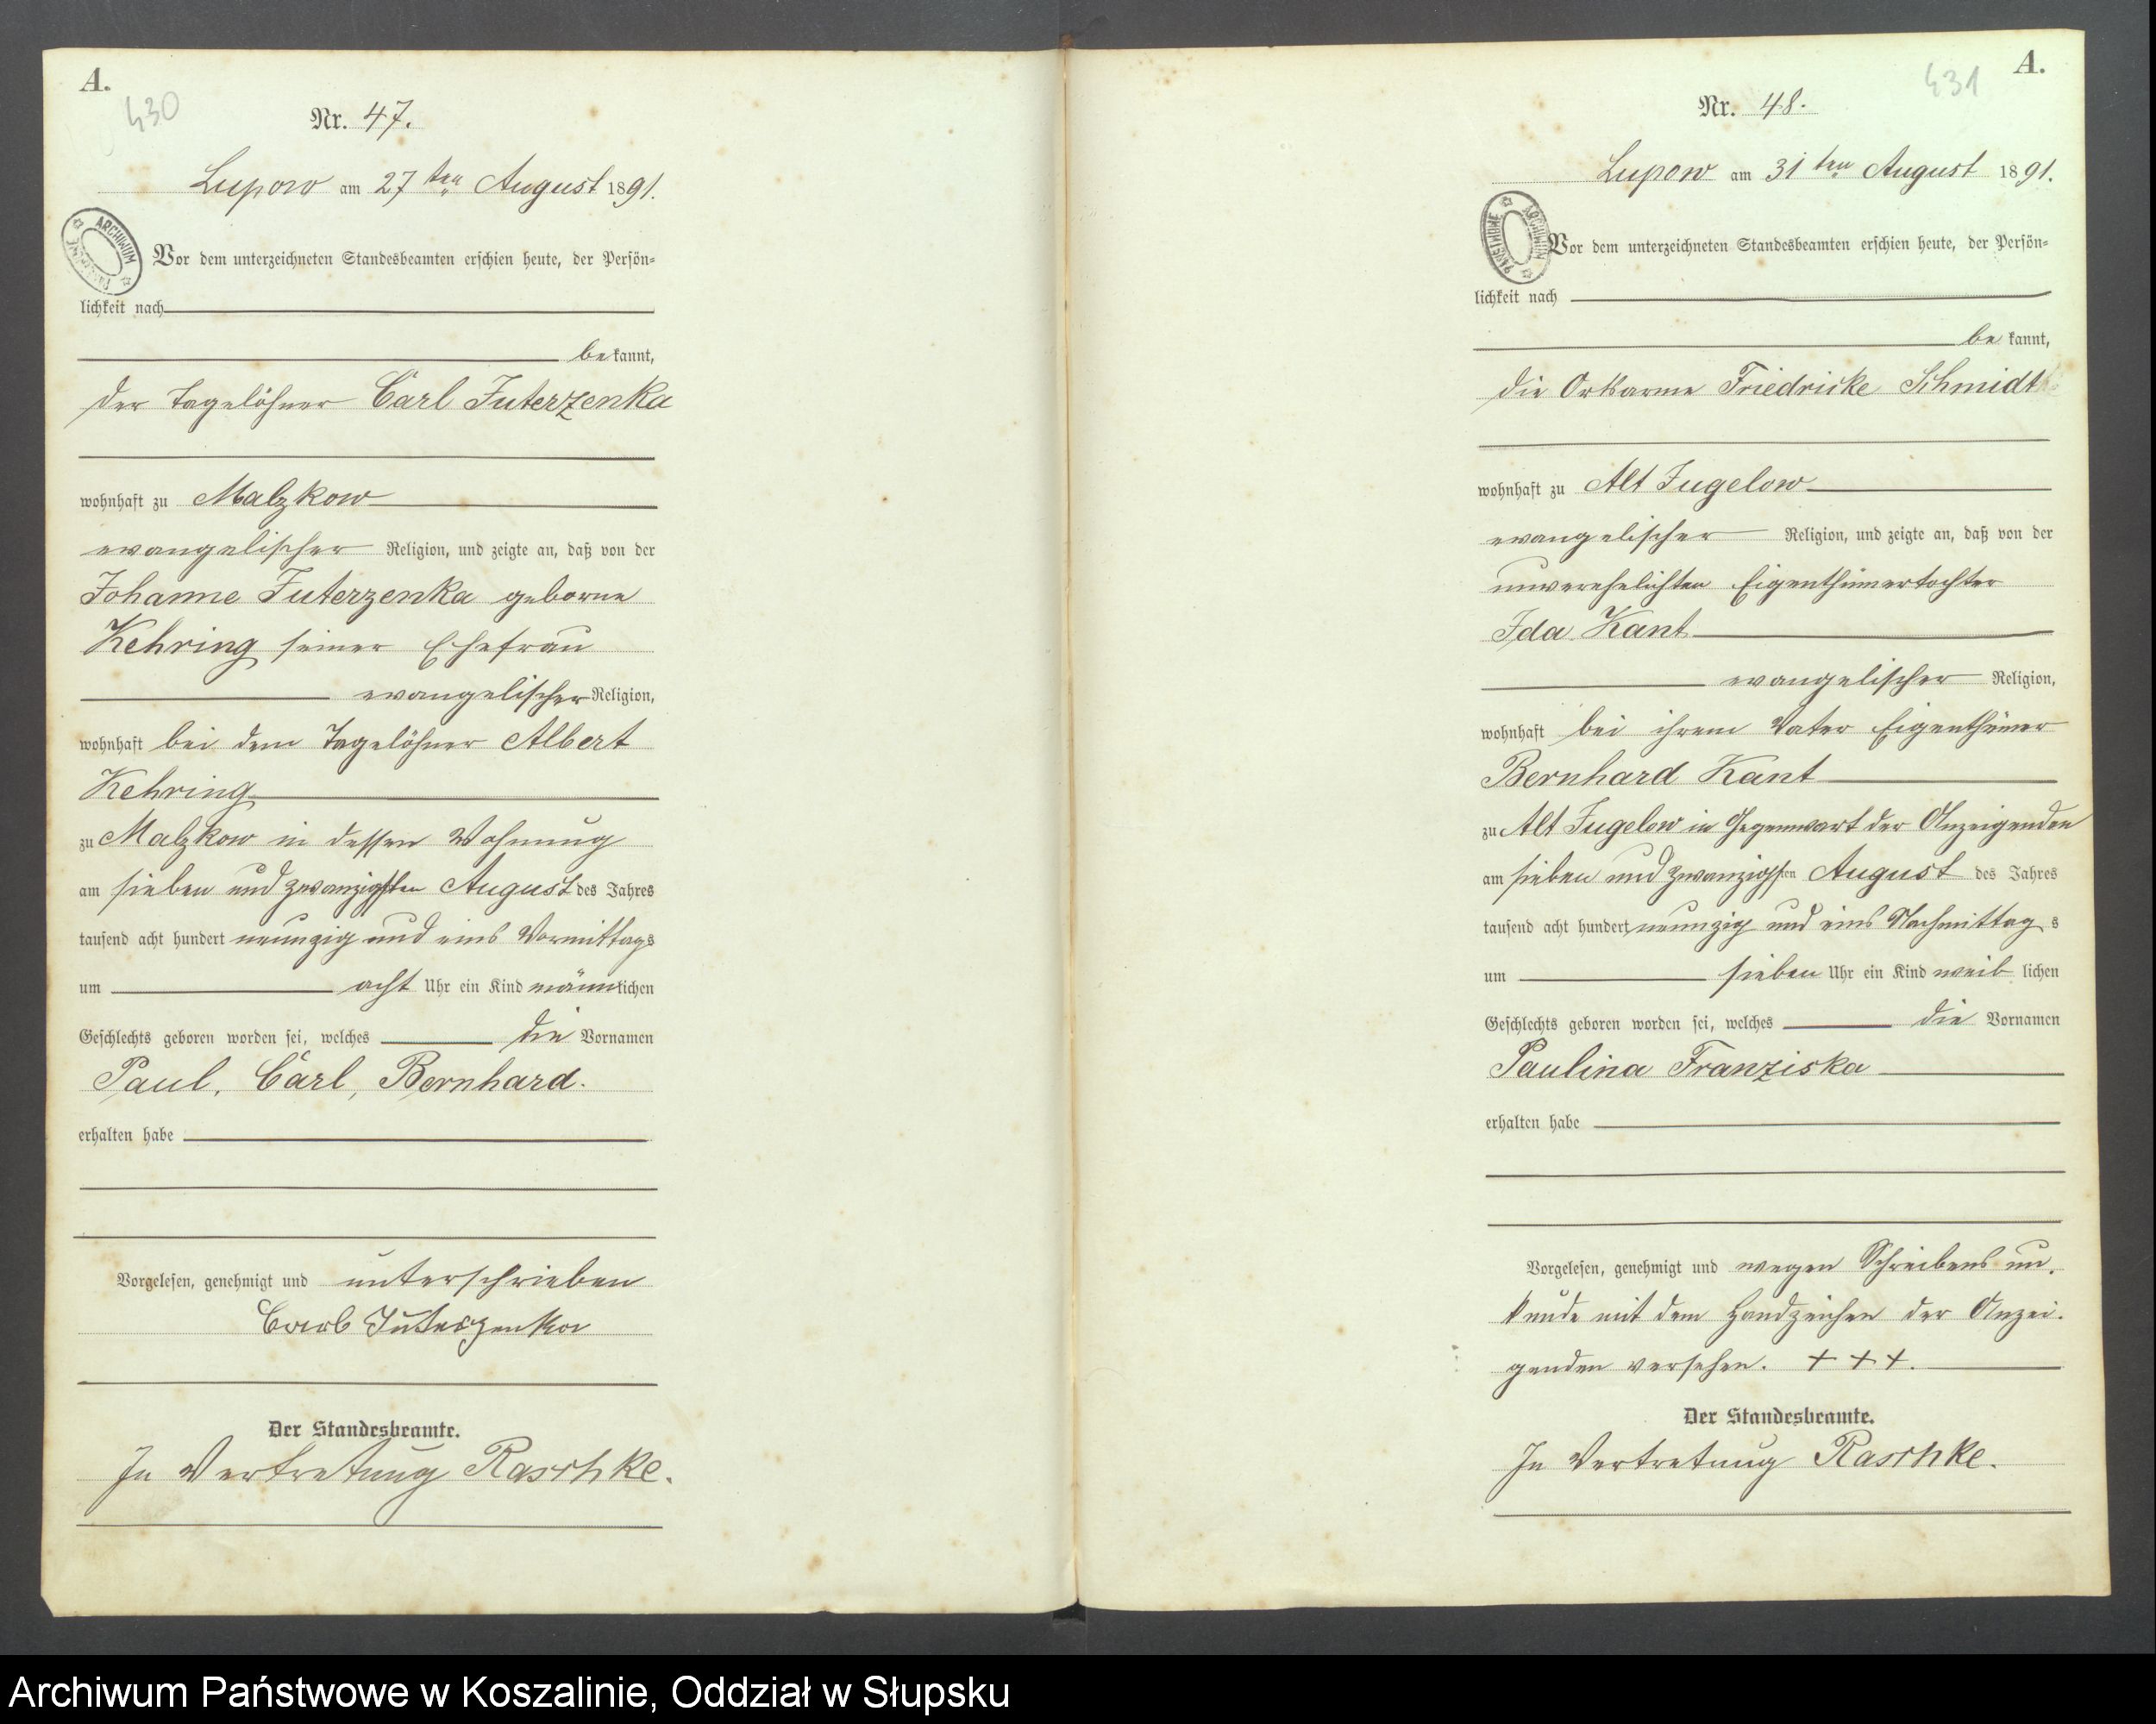 A.
430
Nr. 47.
Lupow am 27ten August 1891.
ARCHIWUM
Vor dem unterzeichneten Standesbeamten erschien heute, der Persön-
lichkeit nach
bekannt,
der Tagelöhner Carl Juterzenka
wohnhaft zu Malzkow
evangelischer Religion, und zeigte an, daß von der
Johanne Juterzenka geborne
Kehring seiner Ehefrau
evangelischer Religion,
wohnhaft bei dem Tagelöhner Albert
Kehring
zu Malzkow in dessen Wohnung
am sieben und zwanzigsten August des Jahres
tausend acht hundert neunzig und eins Vormittags
um acht Uhr ein Kind männlichen
Geschlechts geboren worden sei, welches die Vornamen
Paul, Carl, Bernhard.
erhalten habe
Vorgelesen, genehmigt und unterschrieben
Carl Juterzenka
Der Standesbeamte.
In Vertretung Raschke.
A.
431
Nr. 48.
Lupow am 31ten August 1891.
ARCHIWUM PAŃSTWOWE
Vor dem unterzeichneten Standesbeamten erschien heute, der Persön-
lichkeit nach
bekannt,
die Ortsarme Friedricke Schmidt
wohnhaft zu Alt Jugelow
evangelischer Religion, und zeigte an, daß von der
unverehelichten Eigenthümertochter
Ida Kant
evangelischer Religion,
wohnhaft bei ihrem Vater Eigenthümer
Bernhard Kant
zu Alt Jugelow in Gegenwart der Anzeigenden
am sieben und zwanzigsten August des Jahres
tausend acht hundert neunzig und eins Nachmittags
um sieben Uhr ein Kind weiblichen
Geschlechts geboren worden sei, welches die Vornamen
Paulina Franziska
erhalten habe
Vorgelesen, genehmigt und wegen Schreibens un.
kunde mit dem Handzeichen der Anzei.
genden versehen. + + +.
Der Standesbeamte.
In Vertretung Raschke.
Archiwum Państwowe w Koszalinie, Oddział w Słupsku